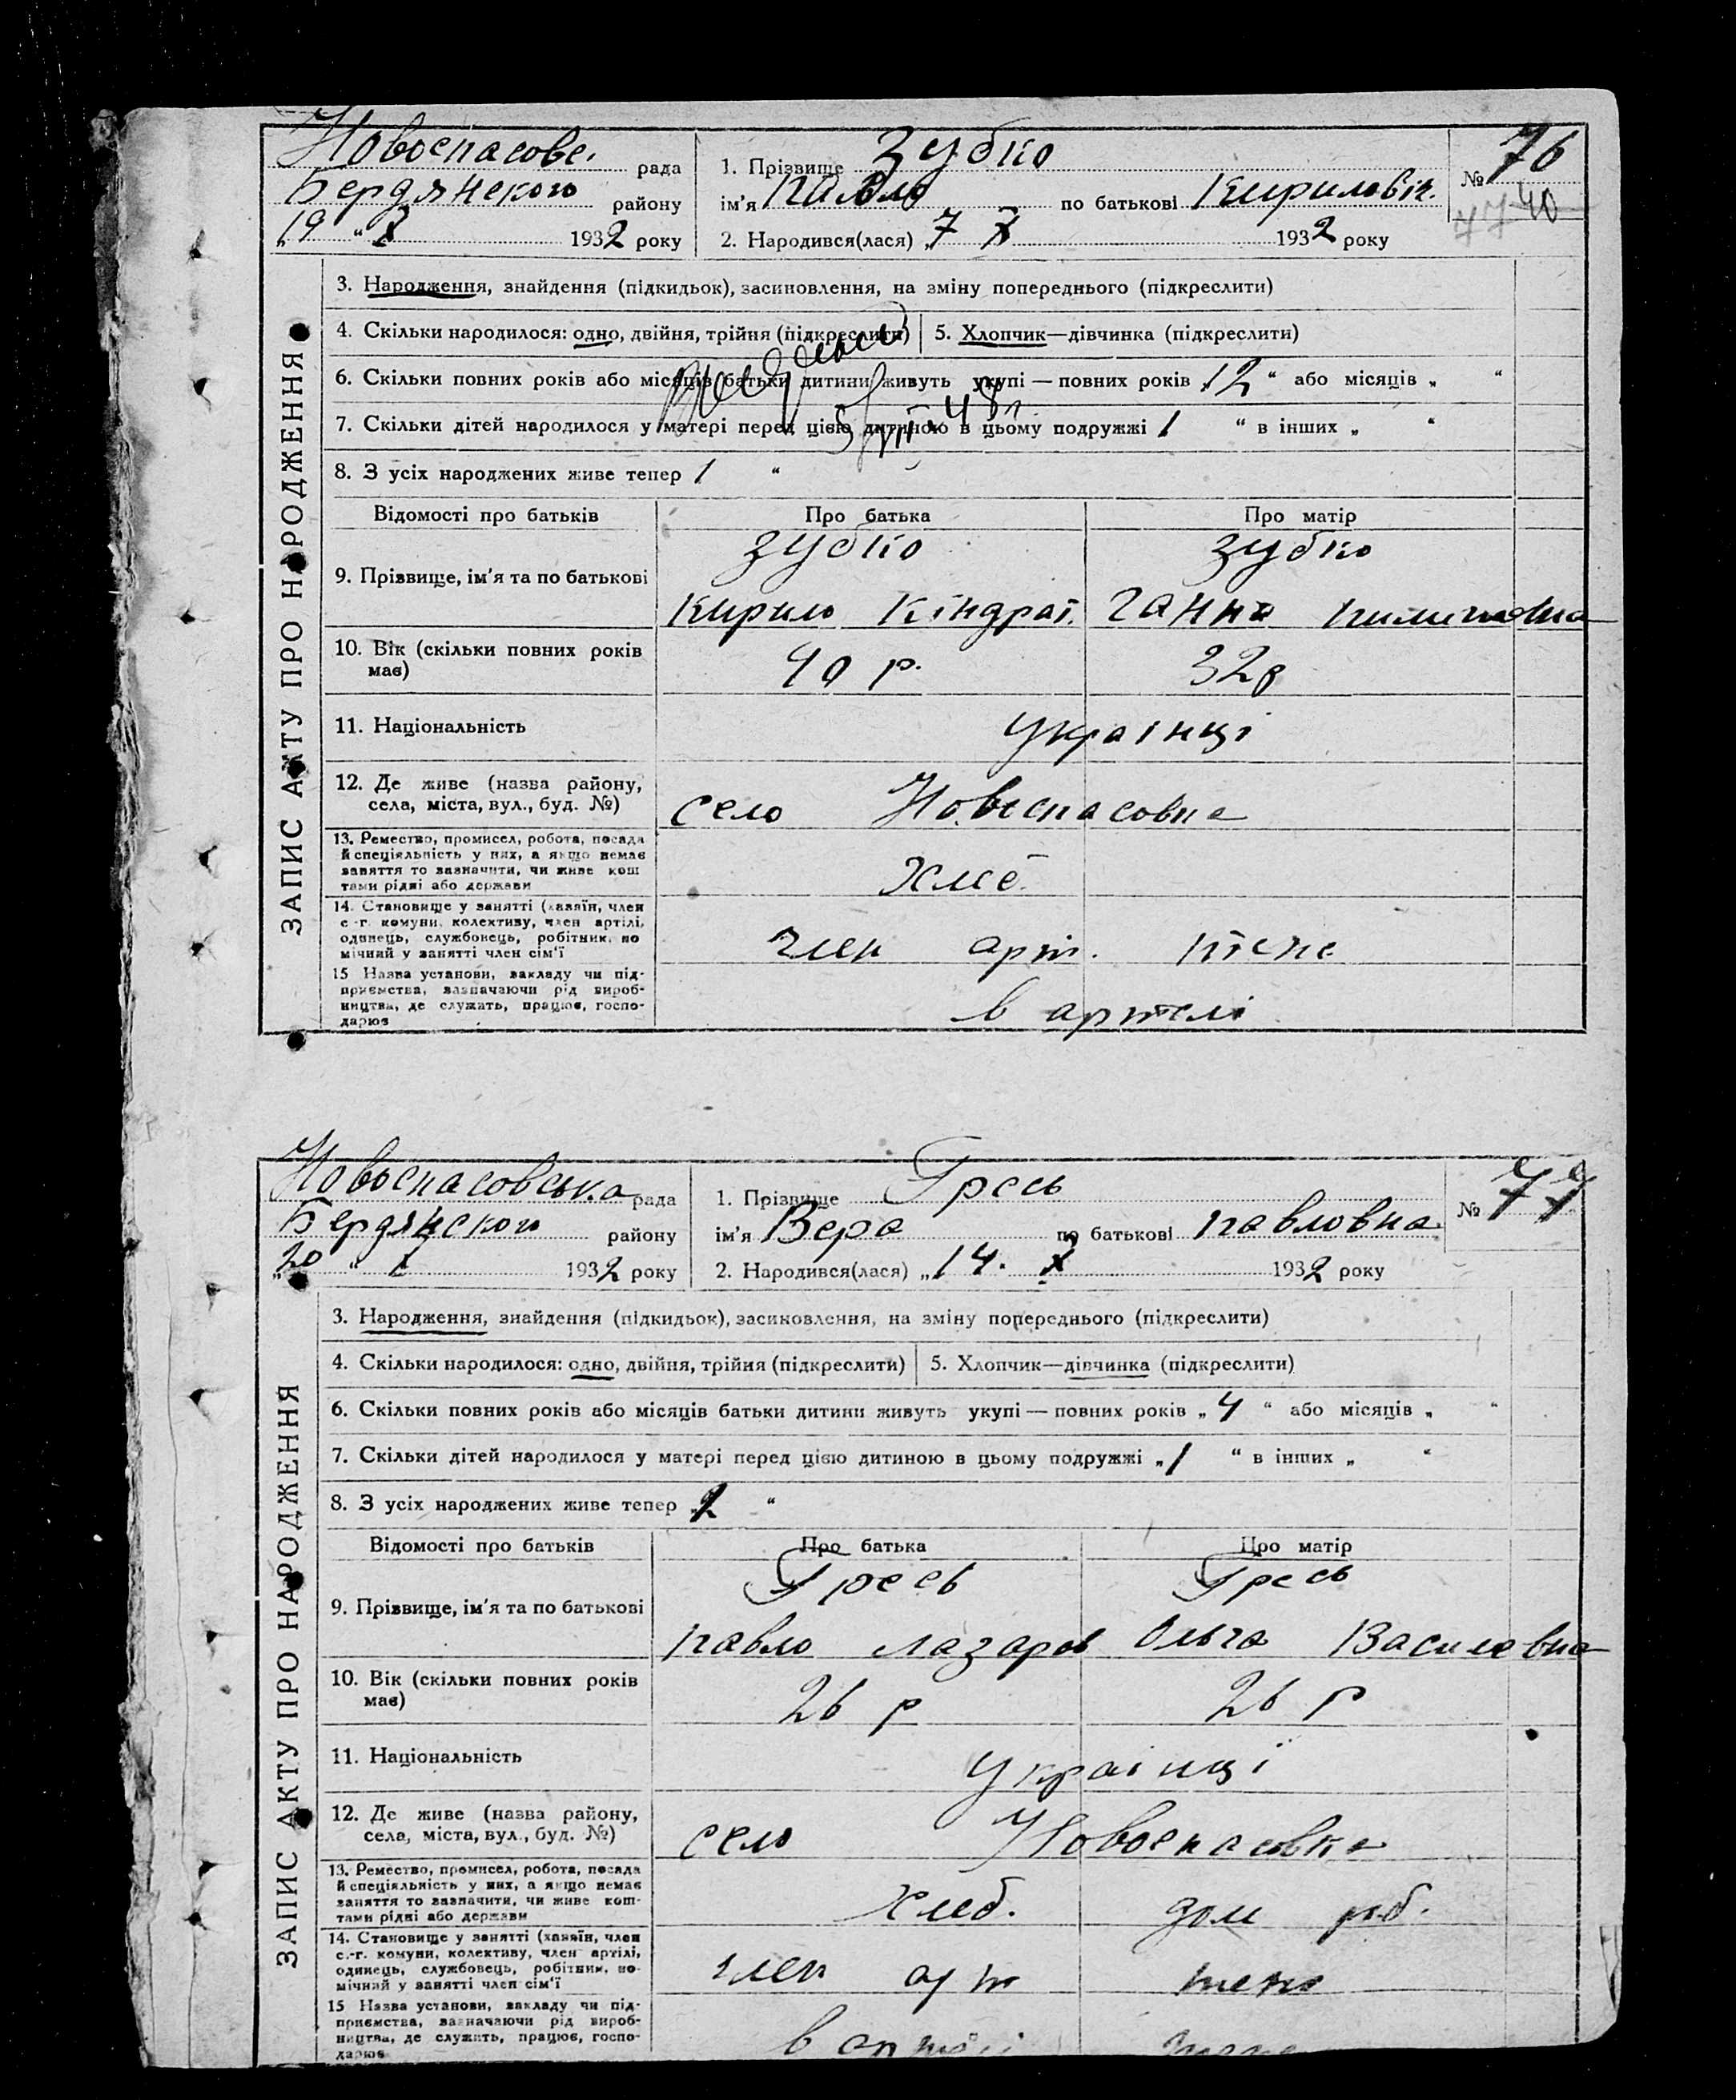 Новоспасовс. рада
Бердянского району
"19" X 1932 року
1. Прізвище Зубко
ім'я Павло по батькові Кирилович.
2. Народився(лася) "7 X 1932 року
№ 76
77 40
ЗАПИС АКТУ ПРО НАРОДЖЕННЯ
3. Народження, знайдення (підкидьок), засиновлення, на зміну попереднього (підкреслити)
4. Скільки народилося: одно, двійня, трійня (підкреслити) 5. Хлопчик—дівчинка (підкреслити)
6. Скільки повних років або місяців батьки дитини живуть укупі — повних років „12“ або місяців „ “
7. Скільки дітей народилося у матері перед цією дитиною в цьому подружжі 1 “ в інших „ “
8. З усіх народжених живе тепер 1 “
Відомості про батьків Про батька Про матір
Зубко Зубко
9. Прізвище, ім'я та по батькові
Кирило Кіндрат. Ганна Пилиповна
10. Вік (скільки повних років має) 40 р. 32 р
11. Національність українці
12. Де живе (назва району, села, міста, вул., буд. №) село Новоспасовка
13. Ремество, промисел, робота, посада
й спеціяльність у них, а якщо немає
заняття то зазначити, чи живе кош
тами рідні або держави
14. Становище у занятті (хазяїн, член
с.-г. комуни, колективу, член артілі,
одинець, службовець, робітник, по
мічний у занятті член сім'ї
член арт.
15 Назва установи, закладу чи під-
приємства, зазначаючи рід вироб-
ництва, де служать, працює, госпо-
дарює
в артелі
Новоспасовська рада
Бердянского району
„20 “ X 1932 року
1. Прізвище Гресь
ім'я Вера по батькові Павловна.
2. Народився(лася) „14. X 1932 року
№ 77
ЗАПИС АКТУ ПРО НАРОДЖЕННЯ
3. Народження, знайдення (підкидьок), засиновлення, на зміну попереднього (підкреслити)
4. Скільки народилося: одно, двійня, трійня (підкреслити) 5. Хлопчик—дівчинка (підкреслити)
6. Скільки повних років або місяців батьки дитини живуть укупі — повних років „4 “ або місяців „ “
7. Скільки дітей народилося у матері перед цією дитиною в цьому подружжі „1 “ в інших „ “
8. З усіх народжених живе тепер 2 “
Відомості про батьків Про батька Про матір
Гресь Гресь
9. Прізвище, ім'я та по батькові
Павло Лазаров Ольга Василевна
10. Вік (скільки повних років має) 26 р 26 р
11. Національність українці
12. Де живе (назва району, села, міста, вул., буд. №) село Новоспасовка
13. Ремество, промисел, робота, посада
й спеціяльність у них, а якщо немає
заняття то зазначити, чи живе кош-
тами рідні або держави
хліб. дом роб.
14. Становище у занятті (хазяїн, член
с.-г. комуни, колективу, член артілі,
одинець, службовець, робітник, по-
мічний у занятті член сім'ї
член арт
15 Назва установи, закладу чи під-
приємства, зазначаючи рід вироб-
ництва, де служить, працює, госпо-
дарює
в артілі